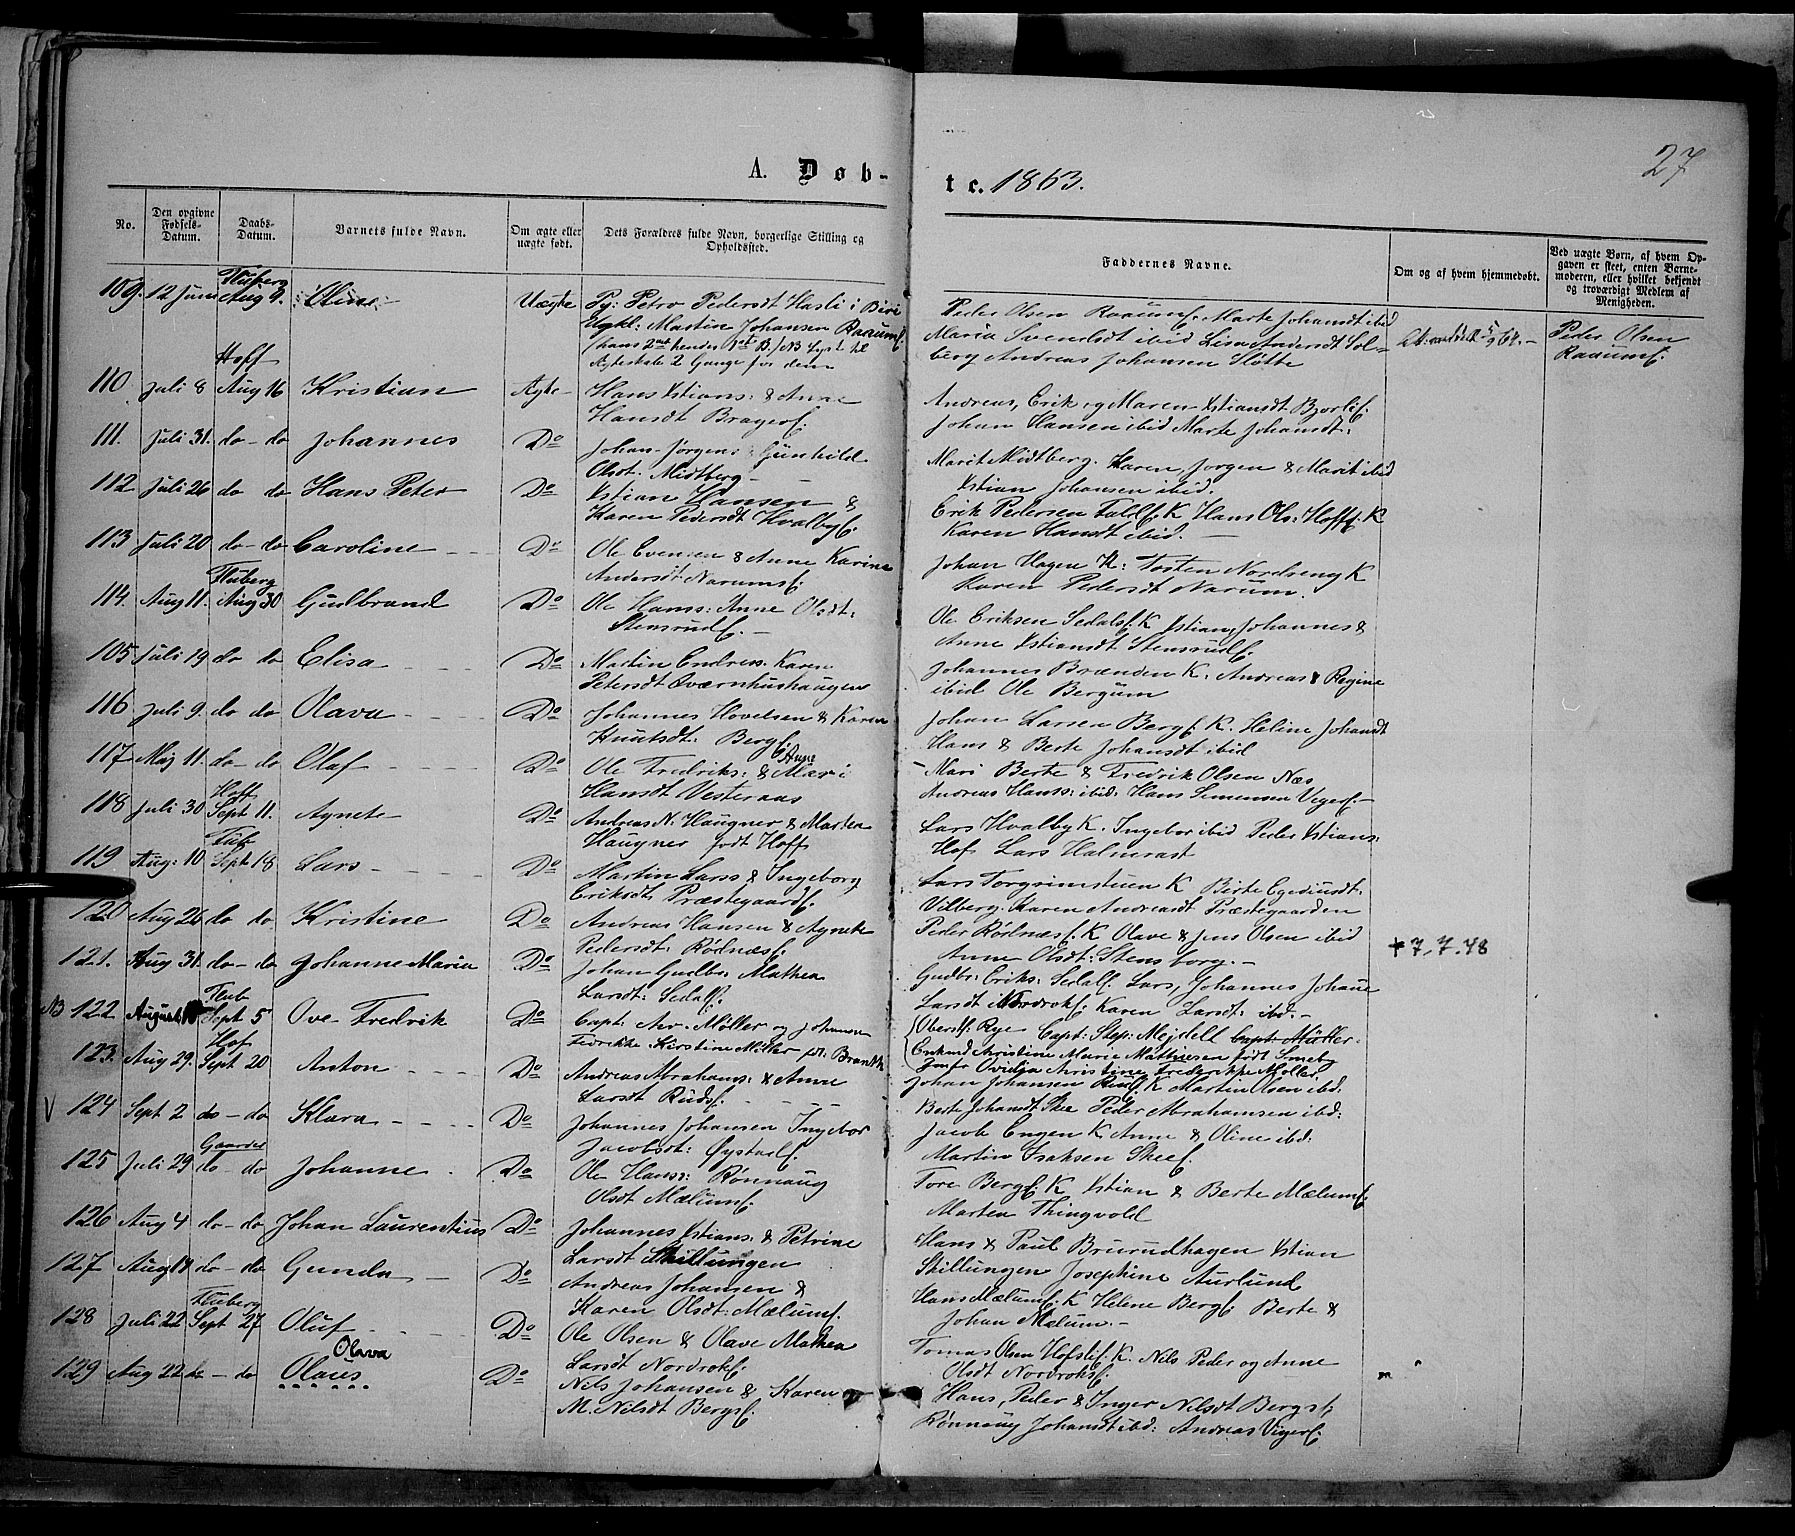 27
A. Døb-
te. 1863.
No.
Den opgivne Fødsels-Datum.
Daabs-Datum.
Barnets fulde Navn.
Om ægte eller uægte født.
Dets Forældres fulde Navn, borgerlige Stilling og Opholdssted.
Faddernes Navne.
Om og af hvem hjemmedøbt.
Ved uægte Børn, af hvem Opgaven er skeet, enten Barnemoderen, eller hvilket bekjendt og troværdigt Medlem af Menigheden.
Fluberg
109. 12 Juni Aug 9. Oline Uægte Pg: Petro Pedersdt Hasli i Biri
Ugkl: Martin Johansen Raaumf.
hans 2det hendes 1ste B. / NB Lyst til
Ægteskab 2 Gange for dem
Peder Olsen Raaumf. Marte Johansdt ibid
Maria Svendsdt ibid Lisa Andersdt Sol-
berg Andreas Johansen Slotte
Peder Olsen
Raaumf.
Hoff
110 Juli 8 Aug 16 Kristian Ægte Hans Kstians: & Anne
Hansdt Bragerf.
Andreas, Erik og Maren Kstiansdt Bjorlif.
Johan Hansen ibid Marte Johansdt:
111. Juli 31. do-do Johannes Do Johan Jørgens: Gunhild
Olsdt. Midtberg
Marit Midtberg. Karen, Jørgen & Marit ibid
Kstian Johansen ibid.
112 Juli 26 do do Hans Peter Do Kstian Hansen &
Karen Pedersdt Hvalbyf.
Erik Pedersen Faldf. K Hans Ols: Hofff. K
Karen Hansdt ibid.
113 Juli 20 do-do Caroline Do Ole Evensen & Anne Karine
Andersdt Narumsf.
Johan Hagen K: Tosten Nordseng K
Karen Pedersdt Narum.
Fluberg
114. Aug 11. Aug 30 Gulbrand Do Ole Hanss: Anne Olsdt:
Stensrudf.
Ole Eriksen Sedalsf. K Kstian, Johannes &
Anne Kstiansdt Stensrudf.
105 Juli 19 do do Elisa Do Martin Endres. Karen
Petersdt Øvernhushaugen
Johannes Brænden K. Andreas & Regine
ibid Ole Bergum
116 Juli 9. do do Olava Do Johannes Hovelsen & Karen
Knutsdt: Bergf.
Johan Larsen Bergf. K. Heline Johansdt
Hans & Berte Johansdt ibid
117 Maj 11. do-do Olaf Do Ole Fredriks: & Anne Mari
Hansdt Vesteraas
Mari Berte & Fredrik Olsen Næs
Andreas Hanss: ibid: Hans Simensen Vegerf.
Hoff
118 Juli 30 Sept 11. Agnete Do Andreas N. Haugner & Marten
Haugner født Hoff
Lars Hvalby K. Ingebor ibid Peder Kstians:
Hof Lars Halmrast
Flub
119 Aug: 10 Sept 18 Lars Do Martin Larss & Ingeborg
Eriksdt Præstegaardf.
Lars Torgrimstuen K Birte Egediusdt:
Vilberg. Karen Andreasdt Præstegaarden
120 Aug 26 do do Kristine Do Andreas Hansen & Agnete
Pedersdt: Rødnæsf.
Peder Rødnæsf. K Olave & Jens Olsen ibid
Anne Olsdt: Stensborg.
121. Aug 31. do-do Johanne Maria Do Johan Gudbr: Mathea
Larsdt: Sedalf.
Gudbr: Eriks: Sedalf. Lars, Johannes Johane
Larsdt Nordrokf: Karen Larsdt: ibd.
+ 7.7.48
Flub
NB 122 August Sept 5 Ove Fredrik Do Capt: Møller og Johanna
Fredrikke Kirstine Møller fdt: Brandth
Oberstl: Rye Capt: Step: Mejdell Capt: Müller
Enkmd Christine Marie Mathiesen født Smeby
Jmfr Ovidia Christine Frederikke Møller
Hof
123. Aug 29. Sept 20 Anton Do Andreas Abrahams: & Anne
Larsdt Rudsf.
Johan Johansen Rudf. K Martin Olsen ibd.
Berte Johansdt Skee Peder Abrahamsen ibd:
V 124 Sept 2 do-do Klara Do Johannes Johansen Ingebor
Jacobsdt: Øystadf.
Jacob Engen K Anne & Oline ibd:
Martin Isaksen Skeef.
Gaarder
125 Juli 29 do-do Johanne Do Ole Hanss: Rønnaug
Olsdt Mælumf.
Tore Bergf. K Kstian & Berte Mælumf.
Marten Thingvold
126 Aug 4 do-do Johan Laurentius Do Johannes Kstians: & Petrine
Larsdt Skillungen
Hans & Paul Brurudhagen Kstian
Skillungen Josephine Aurlund
127 Aug 19 do-do Gunda Do Andreas Johansen &
Karen Olsdt: Mælumf.
Hans Mælumf. K Helene Bergf. Berte &
Johan Mælum.
Fluberg
128 Juli 22 Sept 27 Oluf Do Ole Olsen & Olave Mathea
Larsdt Nordrokf.
Tomas Olsen Hofslif. K. Nils Peder og Anne
Olsdt Nordrokf.
Olava
129 Aug 22 do-do Olaus Do Nils Johansen & Karen
M. Nilsdt Bergsf.
Hans, Peder & Inger Nilsdt Bergsf.
Rønnaug Johansdt ibd: Andreas Vigerf.